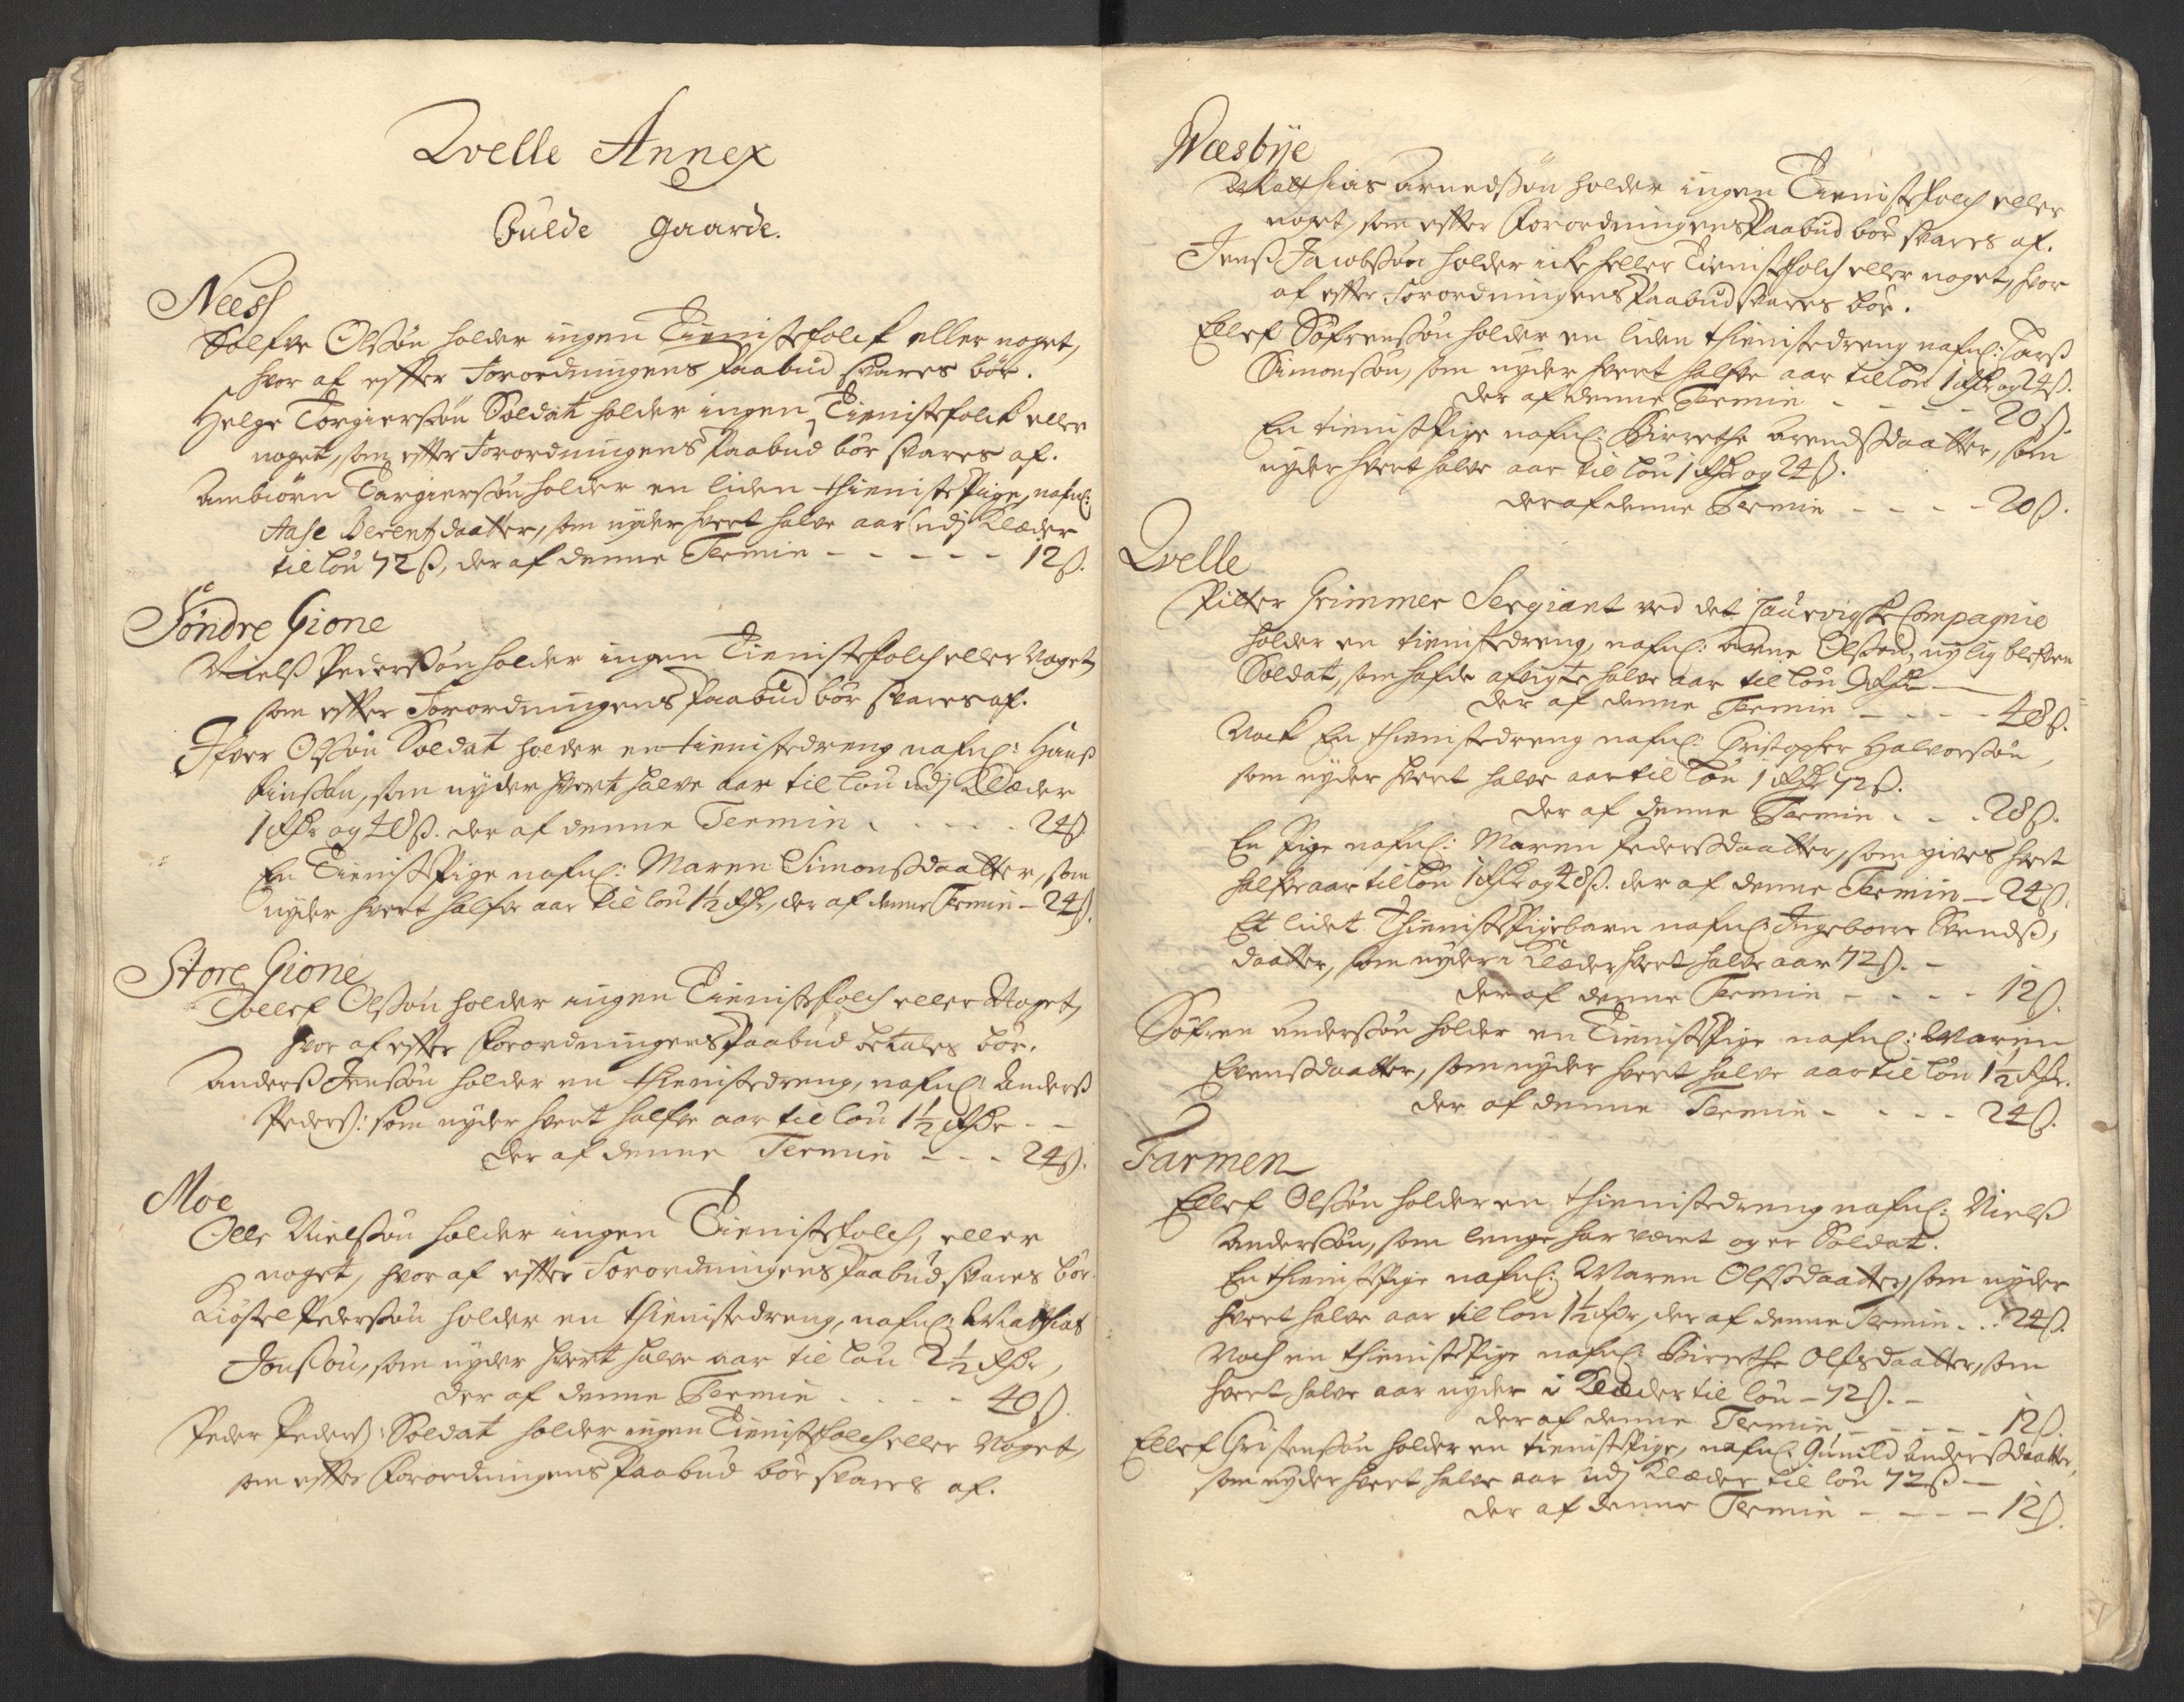 Qvelle Annex
Fulde gaarde.
Ness
Solfve Olssøn holder ingen Tienistefolck eller noget,
hvor af effter Forordningens Paabud svares bør.
Helge Torgierssøn Soldat holder ingen Tienistefolck eller
noget, som effter Forordningens Paabud bør svares af.
Anbiørn Targierssøn holder en liden thieniste Pige, nafnl:
Aase Berentzdaatter, som nyder hvert halve aar udj Klæder
til løn 72 ß, der af denne Termin - - - - - 12 ß.
Søndre Gione
Nielß Pederssøn holder ingen Tienistefolch eller Noget,
som effter Forordningens Paabud bør svares af.
Ifver Olssøn Soldat holder en tienistedreng nafnl: Hanß
som nyder hvert halve aar til løn udj Klæder
1 Rdr og 48 ß. der af denne Termin - - - - 24 ß
En Tieniste Pige nafnl: Maren Simonsdaatter, som
nyder hvert halfve aar til løn 1½ Rdr, der af denne Termin - 24 ß.
Store Gione
Tollef Olssøn holder ingen Tienistefolch eller Noget,
hvor af effter Forordningens Paabud betales bør.
Anderß Jenssøn holder en thienistedreng, nafnl: Anderß
Pederß: som nyder hvert halfve aar til løn 1½ Rdr - -
der af denne Termin - - - 24 ß.
Moe
Olle Nielssøn holder ingen Tienistefolch, eller
noget, hvor af effter Forordningens Paabud svares bør.
Kiøstel Pederssøn holder en thienistedreng, nafnl: Mathias
Jonssøn, som nyder hvert halve aar til løn 2½ Rdr,
der af denne Termin - - - - 40 ß.
Peder Pederß: Soldat holder ingen Tienistefolch eller Noget,
som effter Forordningens Paabud bør svares af.
Wæsbÿe
Matthias Arnedssøn holder ingen Tienistefolch eller
noget, som effter Forordningens Paabud bør svares af.
Jenß Jacobssøn holder icke heller Tienistefolch eller noget, hvor
af effter Forordningens Paabud svares bør.
Ellef Søfrenssøn holder en liden thienistedreng nafnl: Larß
Simonssøn, som nyder hvert halfve aar til løn 1 Rdr og 24 ß.
der af denne Termin - - - - 20 ß.
En tieniste Pige nafnl: Birrethe Arendsdaatter, som
nyder hvert halve aar til løn 1 Rdr og 24 ß.
der af denne Termin - - - - 20 ß.
Qvelle
Pitter Grimmer Sergiant ved det Laurvigske Compagnie
holder en tienistedreng, nafnl: Arne Olssøn, nylig bleften
Soldat, som hafde afvigte halve aar til løn 3 Rdr -
der af denne Termin - - - - 48 ß.
Nock En thienistedreng nafnl: Christopher Halvorssøn,
som nyder hvert halve aar til løn 1 Rdr 72 ß.
der af denne Termin - - - 28 ß.
En Pige nafnl: Maren Pedersdaatter, som gives hvert
halfve aar til løn 1 Rdr og 48 ß. der af denne Termin - 24 ß.
Et lidet Thieniste Pigebarn nafnl: Ingeborre Svendß,
daatter, som nyder i Klæder hvert halve aar 72 ß. -
der af denne Termin - - - - 12 ß.
Søfren Anderssøn holder en Tieniste Pige nafnl: Maren
Evensdaatter, som nyder hvert halve aar til løn 1½ Rdr.
der af denne Termin - - - - 24 ß.
Farmen
Ellef Olssøn holder en thienistedreng nafnl: Nielß
Anderssøn, som lenge har været og er Soldat.
En thieniste Pige nafnl: Maren Olfsdaatter, som nyder
hvert halve aar til løn 1½ Rdr, der af denne Termin - - 24 ß.
Noch en thieniste Pige nafnl: Birrethe Olfsdaatter, som
hvert halve aar nyder i Klæder til løn - 72 ß. -
der af denne Termin - - - - - 12 ß.
Ellef Christenssøn holder en tieniste Pige, nafnl: Gunild Andersdaatter,
som nyder hvert halve aar udj Klæder til løn 72 ß -
der af denne Termin - - - - 12 ß.